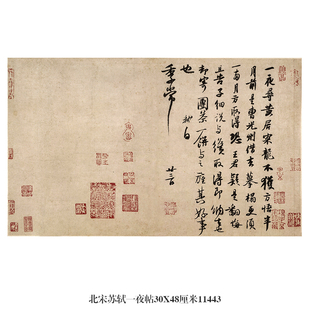 一夜寻黄居寀龙不获方悟半
月前是曹光州借去摹搨更须
一两月方取得恐王君疑是翻悔
且告子细说与才取得即纳去也
却寄团茶一饼与之旌其好事
也
轼白
季常
廿三日
北宋苏轼一夜帖30X48厘米11443